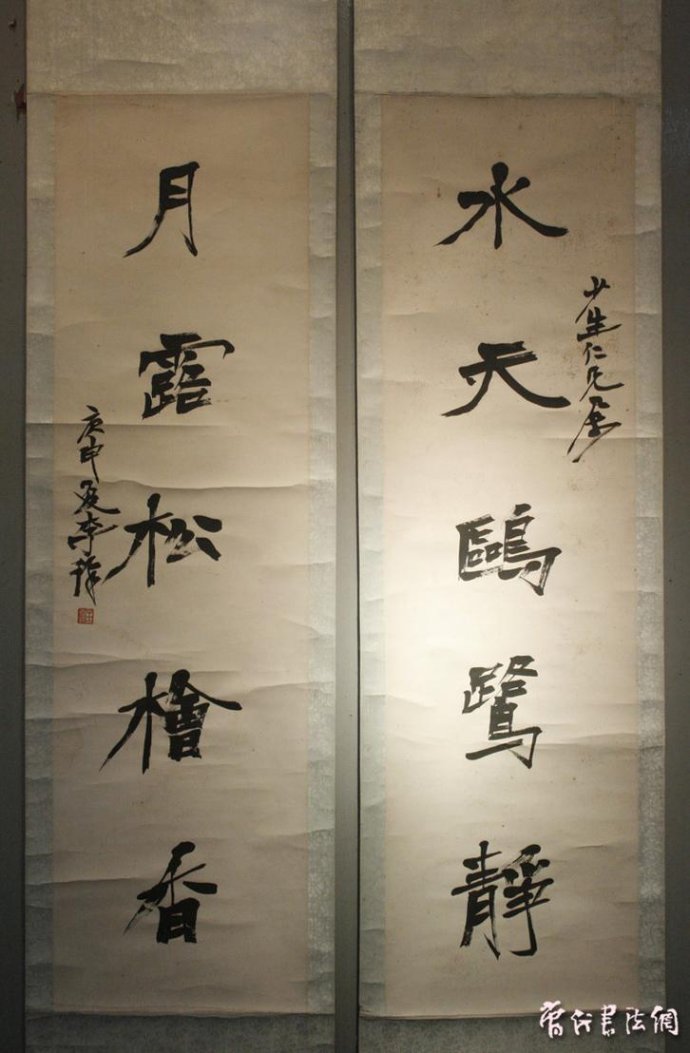 水天鷗鷺靜
少生仁兄屬
月露松檜香
庚申夏李
當代書法網